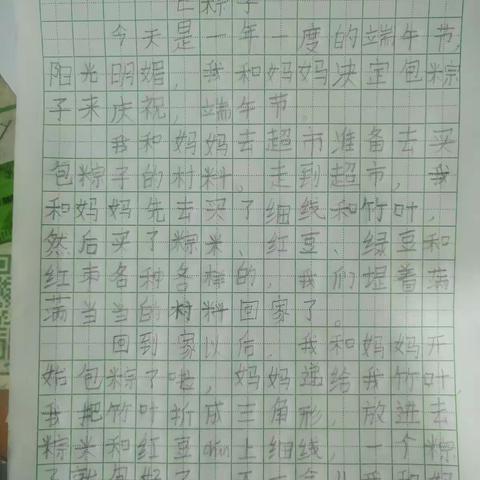 包粽子
今天是一年一度的端午节,
阳光明媚,我和妈妈决定包粽
子来庆祝,端午节.
我和妈妈去超市准备去买
包粽子的材料。走到超市,我
和妈妈先去买了细线和竹叶,
然后买了粽米、红豆、绿豆和
红枣各种各样的,我们提着满
满当当的材料回家了。
回到家以后,我和妈妈开
始包粽子啦,妈妈递给我竹叶,
我把竹叶折成三角形,放进去
粽米和红豆 上细线,一个粽
子就包好了